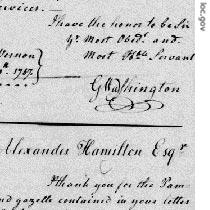 ervices.
I have the honor to be Sir
Yr. Most Obedt. and.
Most Hble Servant
Vernon
1787.
GWashington
Alexander Hamilton Esqr
I thank you for the Pam-
nd gazette contained in your letter
loc.gov